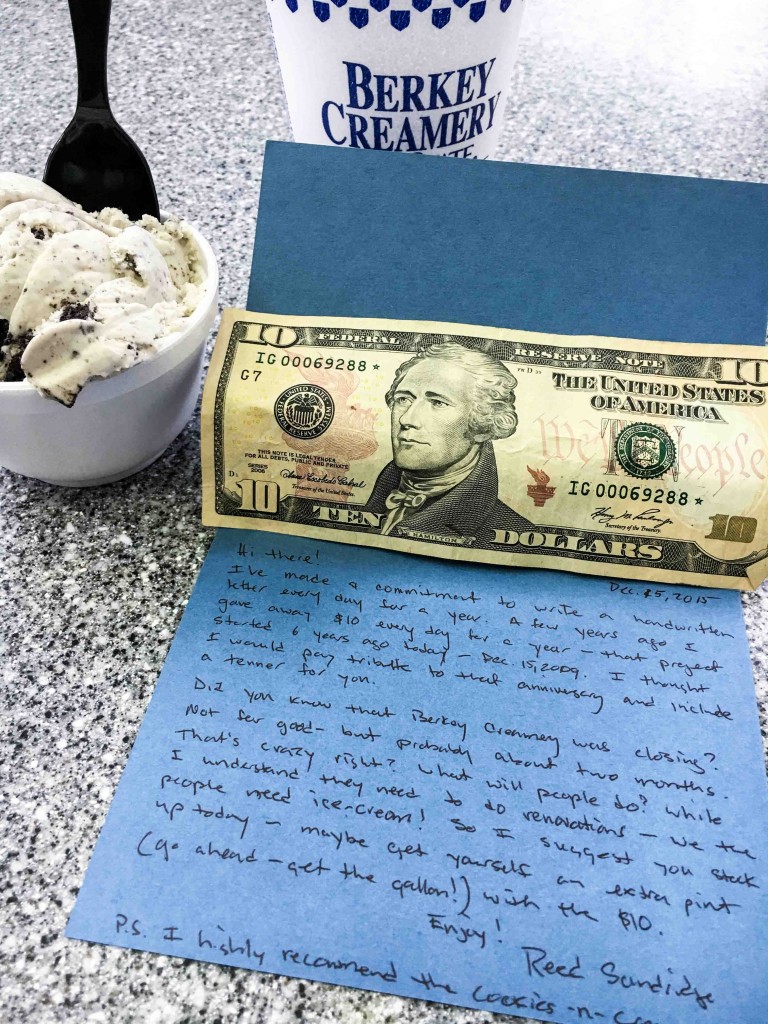 BERKEY
CREAMERY
10 FEDERAL RESERVE NOTE 10
IG 00069288 *
THE UNITED STATES
OF AMERICA
G7
We the People
THIS NOTE IS LEGAL TENDER
FOR ALL DEBTS, PUBLIC AND PRIVATE
IG 00069288 *
SERIES
2006
Treasurer of the United States.
Secretary of the Treasury.
10 TEN HAMILTON DOLLARS 10
Dec. 15, 2015
Hi there!
I've made a commitment to write a handwritten
letter every day for a year. A few years ago I
gave away $10 every day for a year – that project
started 6 years ago today – Dec. 15, 2009. I thought
I would pay tribute to that anniversary and include
a tenner for you.
Did you know that Berkey Creamery was closing?
Not for good – but probably about two months.
That's crazy right? What will people do? While
I understand they need to do renovations – we the
people need ice-cream! So I suggest you stock
up today – maybe get yourself an extra pint
(go ahead – get the gallon!) with the $10.
Enjoy!
Reed Sandridge
P.S. I highly recommend the Cookies-n-